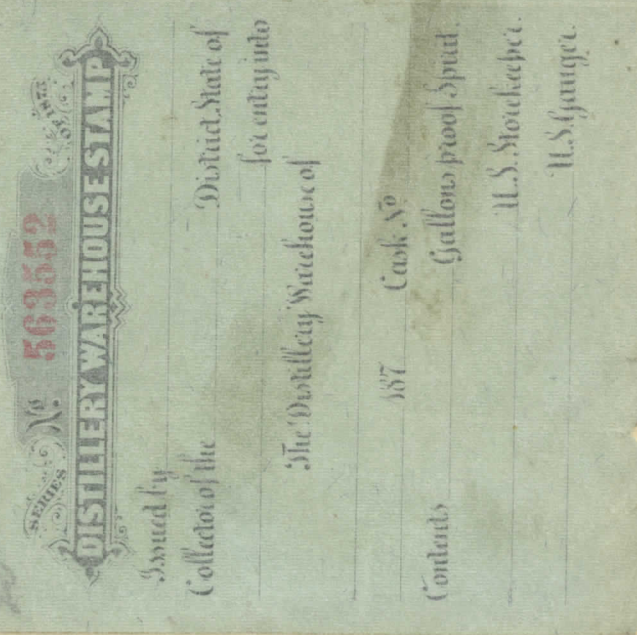 SERIES No. 503552 OF 1873
DISTILLERY WAREHOUSE STAMP
Issued by
Collector of the District State of
for entry into
The Distillery Warehouse of
187 Cask No
Contents Gallons proof Spirit.
U.S. Storekeeper.
U.S. Gauger.